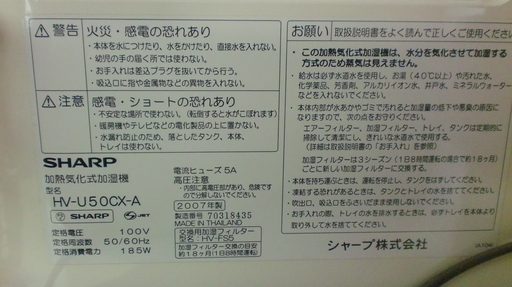 警告 火災・感電の恐れあり
・本体を水につけたり、水をかけたり、直接水を入れない。
・幼児の手の届く所では使わない。
・お手入れは差込プラグを抜いてから行う。
・吸込口に指や金属物などの異物を入れない。
注意 感電・ショートの恐れあり
・不安定な場所で使わない。（転倒すると水がこぼれます）
・暖房機やテレビなどの電化製品の上に置かない。
・水漏れ防止のため、落としたタンク、本体、
トレイは使わない。
SHARP
加熱気化式加湿機
型名
HV-U50CX-A
SHARP JET
定格電圧 100V
定格周波数 50/60Hz
定格消費電力 185W
電流ヒューズ 5A
高圧注意
・内部に高電圧部があり、危険ですので分解しないでください。
2007年製
製造番号 70318435
MADE IN THAILAND
交換用加湿フィルター
形名：HV-FS5
加湿フィルター交換の目安
約18ヶ月（1日8時間）
お願い 取扱説明書をよく読んで正しくご使用ください
・この加熱気化式加湿機は、水分を気化させて加湿する
方式のため蒸気は見えません。
・給水は必ず水道水を使用し、お湯（40℃以上）や汚れた水、
化学薬品、芳香剤、アルカリイオン水、井戸水、ミネラルウォーター
などを入れないでください。
・本体内部が水あかやゴミで汚れると加湿量の低下や悪臭の原因に
なりますので、次の点をお守りください。
エアーフィルター、加湿フィルター、トレイ、タンクは定期的に
掃除して清潔にし、きれいな水道水で使用する。
（詳細は取扱説明書の「お手入れ」を参照）
加湿フィルターは3シーズン（1日8時間運転の場合で約18ヶ月）
ごとに新しい加湿フィルターに交換する。
・本体を持ち運ぶときは、運転を停止し、タンクをはずしてください。
・凍結する恐れがあるときは、タンクとトレイの水を捨ててください。
・吹出口、吸込口をふさいだまま使用しないでください。
・お手入れの際、トレイの水を排水するときは、必ず本体を
取り外して水を捨ててください。
シャープ株式会社